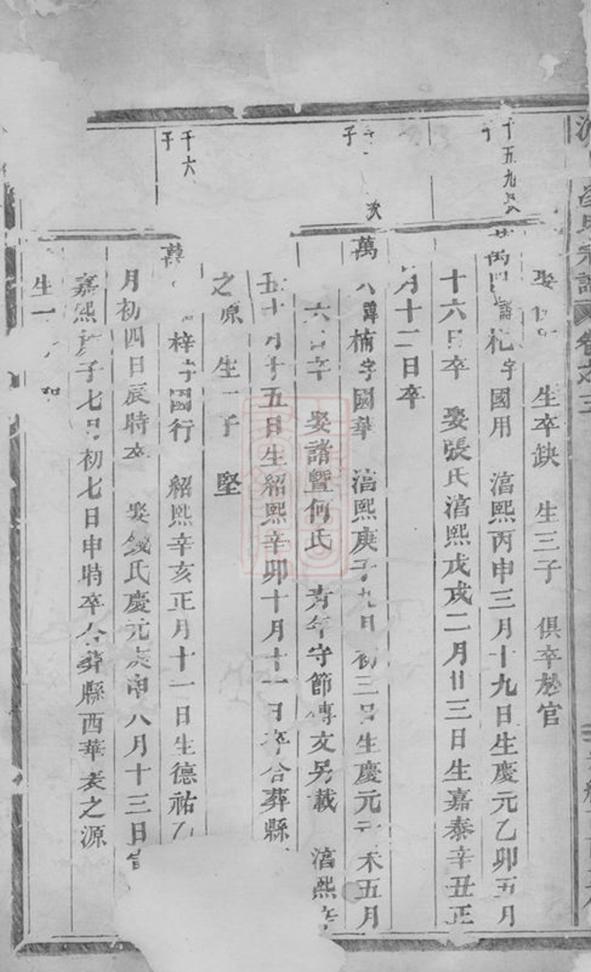 氏宗譜 卷之三
千五九
娶 生卒缺 生三子 俱卒於官
萬四 諱杞字國用 湻熙丙申三月十九日生慶元乙卯五月
十六日卒 娶張氏湻熙戊戌二月廿三日生嘉泰辛丑正
月十二日卒
子
萬八諱楠字國華 湻熙庚子九月初三日生慶元 未五月
六日卒 娶諸暨何氏 青年守節傳文另載 湻熙辛
丑十月十五日生紹熙辛卯十月十一日卒合葬縣
之原 生一子 堅
千六
子
萬 梓字國行 紹熙辛亥正月十一日生德祐乙
月初四日辰時卒 娶錢氏慶元庚申八月十三日
嘉熙 子七月初七日申時卒合葬縣西華表之源
生一